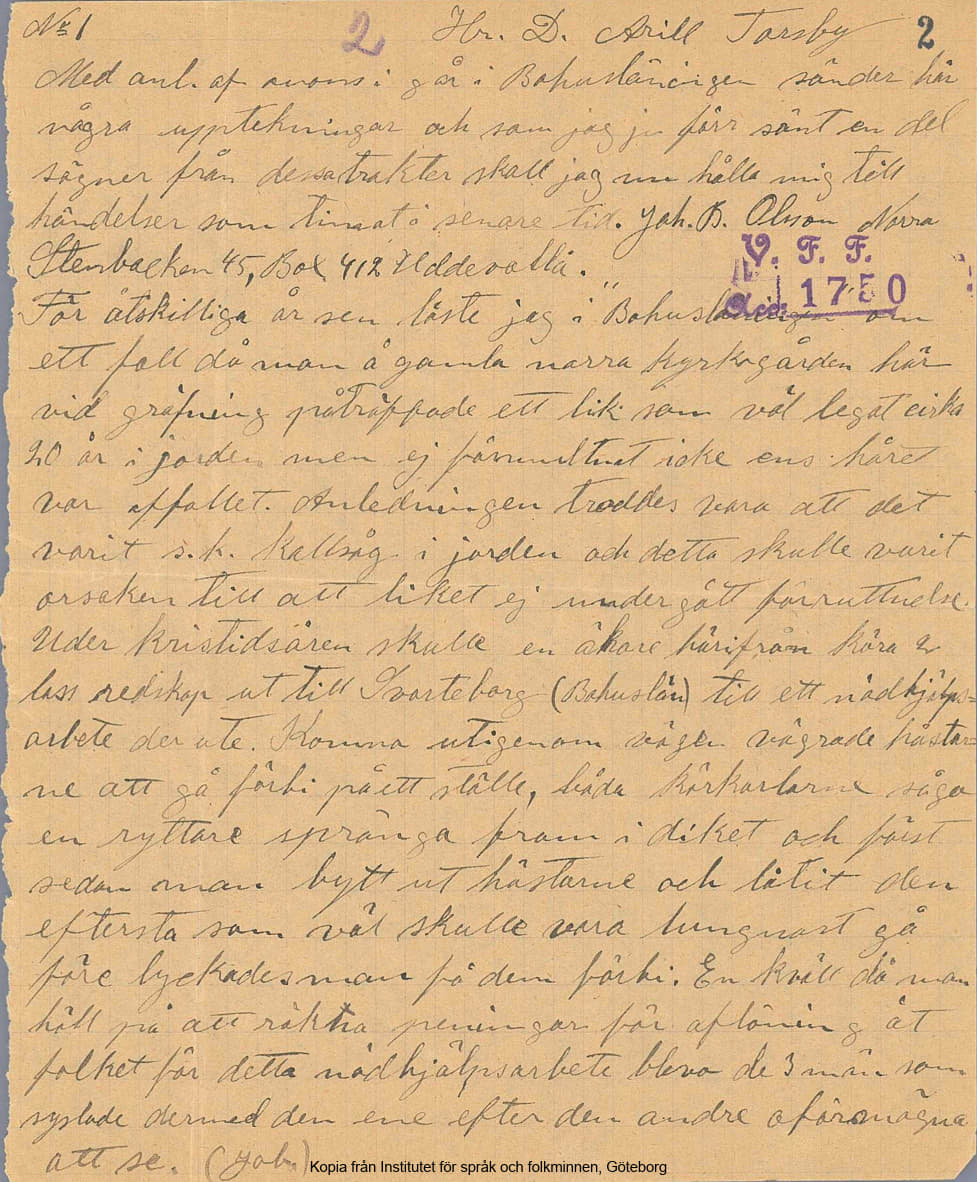 No 1 2 Hr. D. Arill Torsby 2
Med anl. af anons i går i Bohusläningen sänder här
några upptekningar och som jag ju förr sänt en del
sägner från dessa trakter skall jag nu hålla mig till
händelser som timat i senare tid. Joh. B. Olsson Norra
Stenbacken 45, Box 412 Uddevalla.
V. F. F.
Acc. 1750
För åtskilliga år sen läste jag i "Bohusläningen om
ett fall då man å gamla norra kyrkogården här
vid gräfning påträffade ett lik som väl legat cirka
20 år i jorden men ej förmultnat icke ens håret
var affallet. Anledningen troddes vara att det
varit s.k. kallsåg i jorden och detta skulle varit
orsaken till att liket ej undergått förruttnelse.
Uder kristidsåren skulle en åkare härifrån köra 2
lass redskap ut till Svarteborg (Bohuslän) till ett nödhjälps=
arbete der ute. Komna utigenom vägen vägrade hästar=
ne att gå förbi på ett ställe, båda körkarlarne sågo
en ryttare spränga fram i diket och först
sedan man bytt ut hästarne och låtit den
eftersta som väl skulle vara lungnast gå
före lyckades man få dem förbi. En kväll då man
höll på att räkna peningar för aflöning åt
folket för detta nödhjälpsarbete blevo de 3 män som
sysslade dermed den ene efter den andre oförmögna
att se. (Joh.)
Kopia från Institutet för språk och folkminnen, Göteborg